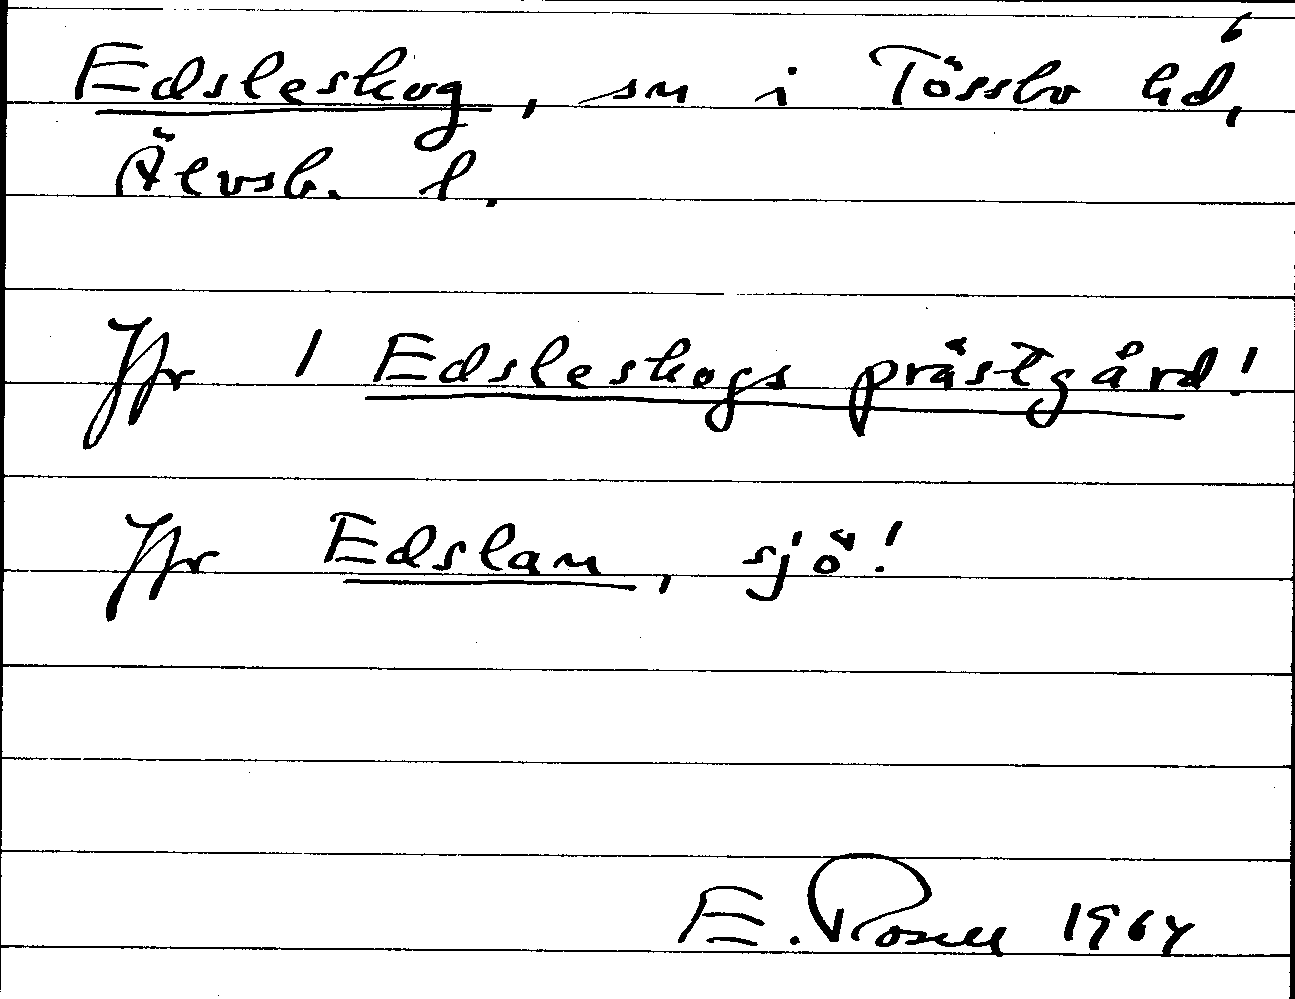 6
Edsleskog, sn i Tössbo hd,
Älvsb. l.
Jfr 1 Edsleskogs prästgård!
Jfr Edslan, sjö!
E. Rosell 1964